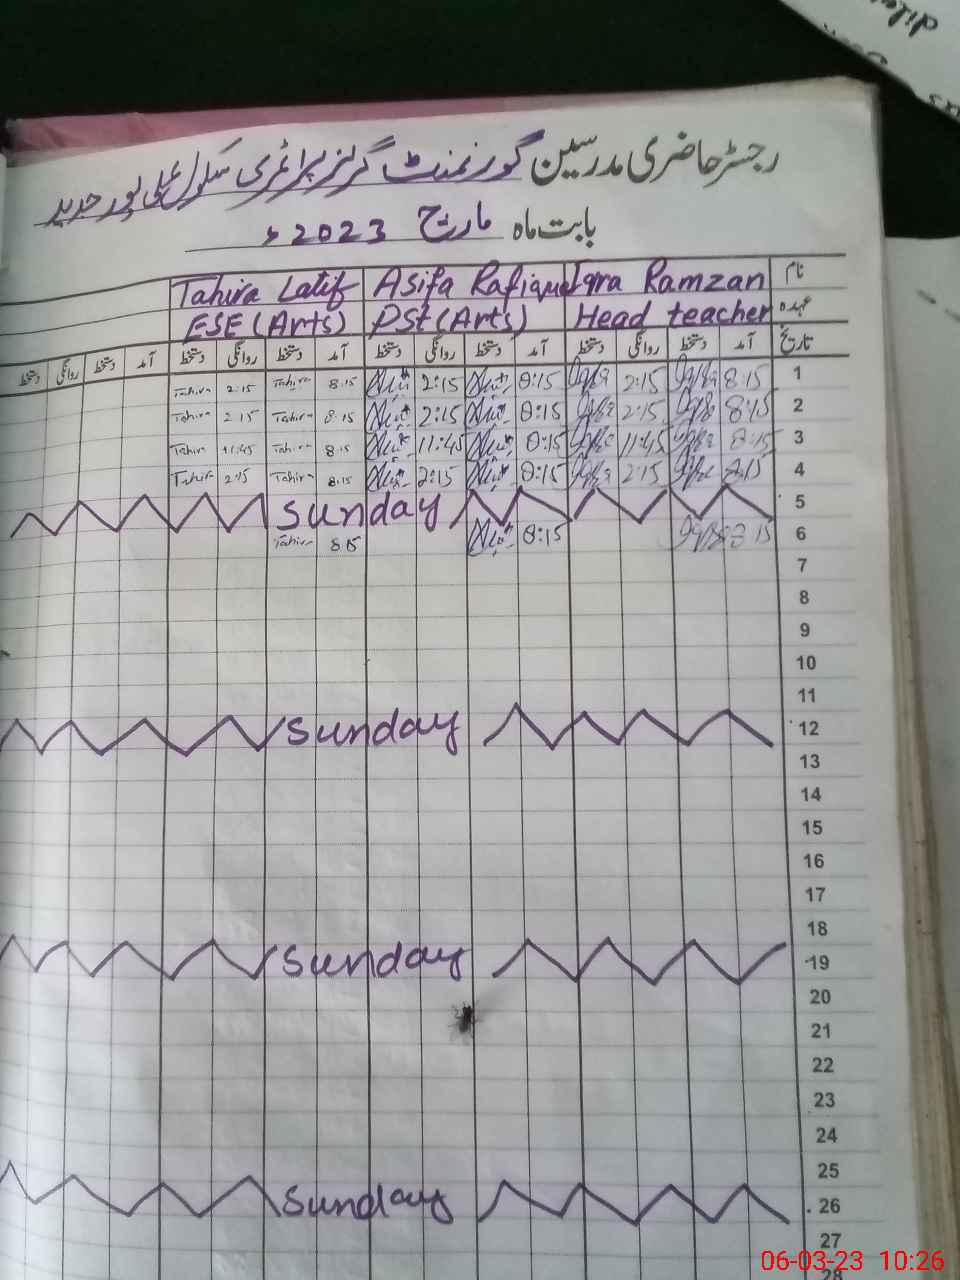 رجسٹر حاضری مدرسین گورنمنٹ گرلز پرائمری سکول علی پور جدید
بابت ماہ مارچ 2023ء
نام Iqra Ramzan Asifa Rafique Tahira Latif
عہدہ Head teacher PST (Arts) ESE (Arts)
تاریخ آمد دستخط روانگی دستخط آمد دستخط روانگی دستخط آمد دستخط روانگی دستخط آمد دستخط روانگی دستخط
1 8:15 Iqra 2:15 Iqra 8:15 2:15 8:15 Tahira 2:15 Tahira
2 8:15 Iqra 2:15 Iqra 8:15 2:15 8:15 Tahira 2:15 Tahira
3 8:15 Iqra 11:45 Iqra 8:15 11:45 8:15 Tahira 11:45 Tahira
4 8:15 Iqra 2:15 Iqra 8:15 2:15 8:15 Tahira 2:15 Tahira
5 Sunday
6 8:15 Iqra 8:15 8:15 Tahira
7
8
9
10
11
12 Sunday
13
14
15
16
17
18
19 Sunday
20
21
22
23
24
25
26 Sunday
27
28
06-03-23 10:26